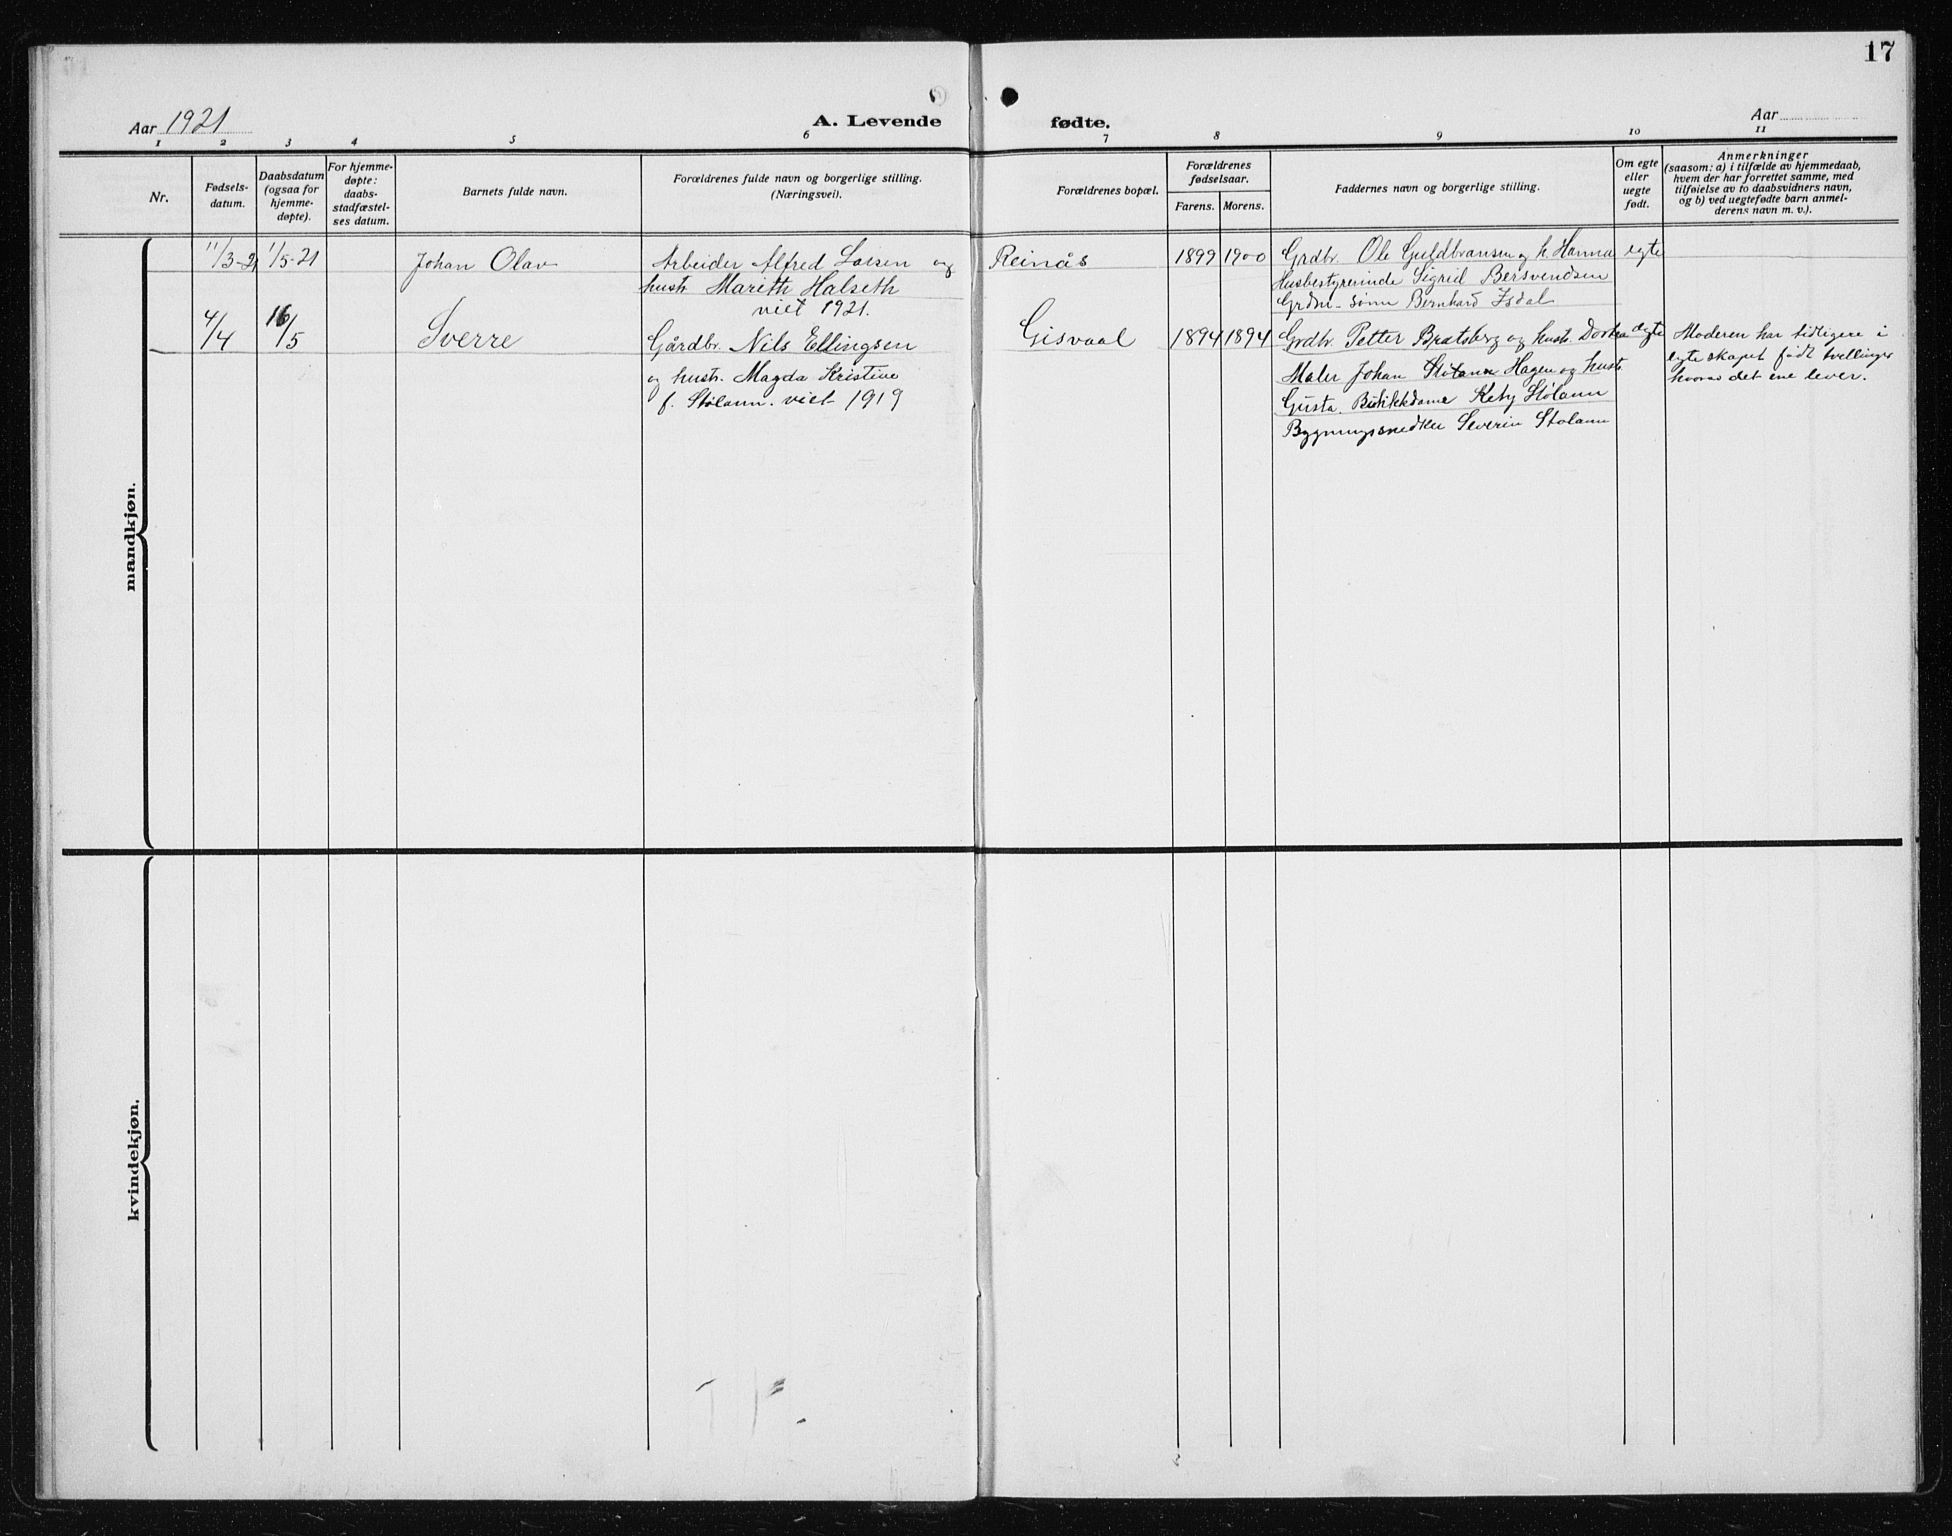 17
Aar 1921
A. Levende
fødte.
Aar
1 2 3 4 5 6 7 8 9 10 11
Nr.
Fødsels-
datum.
Daabsdatum
(ogsaa for
hjemme-
døpte).
For hjemme-
døpte:
daabs-
stadfæstel-
ses datum.
Barnets fulde navn.
Forældrenes fulde navn og borgerlige stilling.
(Næringsvei).
Forældrenes bopæl.
Forældrenes
fødselsaar.
Farens. Morens.
Faddernes navn og borgerlige stilling.
Om egte
eller
uegte
født.
Anmerkninger
(saasom: a) i tilfælde av hjemmedaab,
hvem der har forrettet samme, med
tilføielse av to daabsvidners navn,
og b) ved uegtefødte barn anmel-
derens navn m. v.).
mandkjøn.
11/3-21 1/5-21 Johan Olav
Arbeider Alfred Larsen og
hustr. Mareth Halseth
viet 1921.
Reinås 1899 1900
Grdbr. Ole Guldbransen og h. Hanna
Husbestyrerinde Sigrid Bersvendsen
Grdbr. sønn Bernhard Isdal
egte
4/4 16/5 Sverre
Gårdbr. Nils Ellingsen
og hustr. Magda Kristine
f. Stølann. viet 1919
Gisvaal 1894 1894
Grdbr. Petter Bratsberg og hustr. Dortea
Maler Johan Stølann Hagen og hustr.
Gusta. Butikkdame Kety Stølann
Bygningssnedker Severin Stølann
egte
Moderen har tidligere i
egteskapet født tvillinger
hvorav det ene lever.
kvindekjøn.